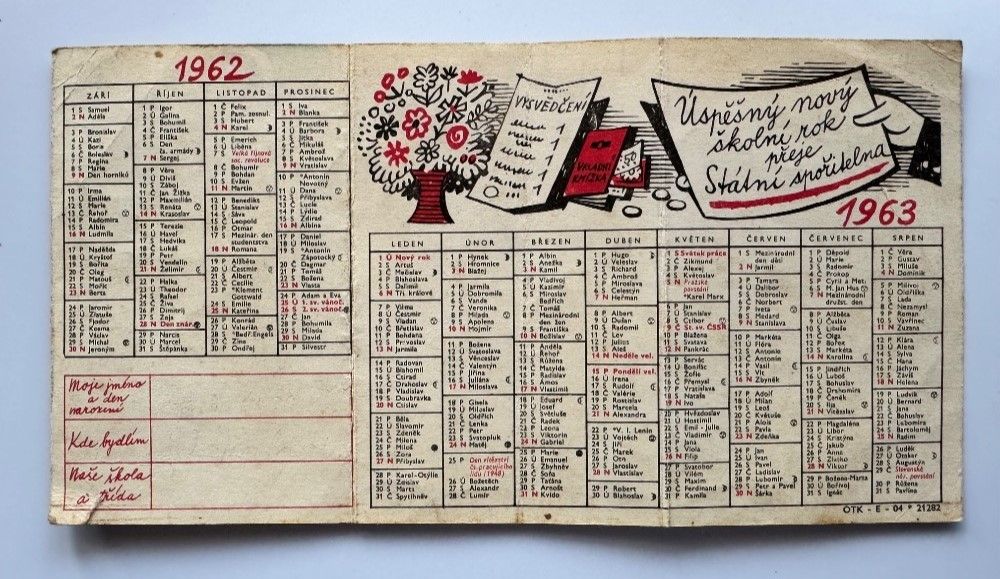 1962
ZÁŘÍ
1 S Samuel
2 N Adéla
3 P Bronislav
4 Ú Kazi
5 S Boris
6 Č Boleslav
7 P Regina
8 S Marie
9 N Den horníků
10 P Irma
11 Ú Emilián
12 S Marie
13 Č Řehoř
14 P Radomíra
15 S Albín
16 N Ludmila
17 P Naděžda
18 Ú Kryštof
19 S Bořita
20 Č Oleg
21 P Matouš
22 S Mořic
23 N Berta
24 P Jaromír
25 Ú Zlatuše
26 S Fjodor
27 Č Kosma
28 P Václav
29 S Michal
30 N Jeroným
ŘÍJEN
1 P Igor
2 Ú Galina
3 S Bohumil
4 Č František
5 P Eliška
6 S Den
čs. armády
7 N Sergej
8 P Věra
9 Ú Diviš
10 S Záboj
11 Č Jan Žižka
12 P Maximilián
13 S Renáta
14 N Krasoslav
15 P Terezie
16 Ú Havel
17 S Hedvika
18 Č Lukáš
19 P Petr
20 S Vendelín
21 N Želimír
22 P Halka
23 Ú Theodor
24 S Rafael
25 Č Zora
26 P Dimitrij
27 S Zoja
28 N Den znár.
29 P Narcis
30 Ú Marcel
31 S Štěpánka
LISTOPAD
1 Č Felix
2 P Pam. zesnul.
3 S Hubert
4 N Karel
5 P Emerich
6 Ú Liběna
7 S Velká říjnová
soc. revoluce
8 Č Bohumír
9 P Bohdan
10 S Evžen
11 N Martin
12 P Benedikt
13 Ú Stanislav
14 S Sáva
15 Č Leopold
16 P Otmar
17 S Mezinár. den
studentstva
18 N Romana
19 P Alžběta
20 Ú Čestmír
21 S Albert
22 Č Cecílie
23 P *Klement
Gottwald
24 S Emílie
25 N Kateřina
26 P Konrád
27 Ú Valerián
28 S *Bedř. Engels
29 Č Zina
30 P Ondřej
PROSINEC
1 S Iva
2 N Blanka
3 P František
4 Ú Barbora
5 S Jitka
6 Č Mikuláš
7 P Ambrož
8 S Květoslava
9 N Vratislav
10 P *Antonín
Novotný
11 Ú Dana
12 S Přibyslava
13 Č Lucie
14 P Lýdie
15 S Zdirad
16 N Albina
17 P Daniel
18 Ú Miloslav
19 S *Antonín
Zápotocký
20 Č Dagmar
21 P Tomáš
22 S Božena
23 N Vlasta
24 P Adam a Eva
25 Ú 1. sv. vánoč.
26 S 2. sv. vánoč.
27 Č Jan
28 P Bohumila
29 S Milada
30 N David
31 P Silvestr
Moje jméno
a den
narození
Kde bydlím
Naše škola
a třída
VYSVĚDČENÍ
1
1
1
1
1
VKLADNÍ
KNÍŽKA
50
Úspěšný nový
školní rok
přeje
Státní spořitelna
1963
LEDEN
1 Ú Nový rok
2 S Artuš
3 Č Melislav
4 P Blahoslav
5 S Dalimil
6 N Tři králové
13 N Jarmila
14 P Radovan
15 Ú Blahomil
16 S Ctirad
17 Č Drahoslav
18 P Vladislav
19 S Doubravka
20 N Ctislav
21 P Běla
22 Ú Slavomír
23 S Zdeněk
24 Č Milena
25 P Miloš
26 S Zora
27 N Přibyslav
28 P Karel-Otýlie
29 Ú Zdislav
30 S Marta
31 Č Spytihněv
ÚNOR
1 P Hynek
2 S Hromnice
3 N Blažej
4 P Jarmila
5 Ú Dobromila
6 S Vanda
7 Č Veronika
8 P Milada
9 S Apolena
10 N Mojmír
11 P Božena
12 Ú Slavoslava
13 S Věnceslav
14 Č Valentýn
15 P Jiřina
16 S Juliána
17 N Miloslava
18 P Gisela
19 Ú Miloslav
20 S Oldřich
21 Č Lenka
22 P Petr
23 S Svatopluk
24 N Matěj
25 P Den vítězství
čs. pracujícího
lidu (1948)
27 S Alexandr
28 Č Lumír
BŘEZEN
1 P Albín
2 S Anežka
3 N Kamil
4 P Vladivoj
5 Ú Kazimír
6 S Miroslav
7 Č Tomáš
8 P Mezinárodní
den žen
9 S Františka
10 N Božislav
11 P Anděla
12 Ú Řehoř
13 S Růžena
14 Č Matylda
15 P Radislav
16 S Ámos
17 N Vlastimil
18 P Eduard
19 Ú Josef
20 S Světluše
21 Č Radek
22 P Leona
23 S Viktorín
24 N Gabriel
25 P Marie
26 Ú Emanuel
27 S Zbyhněv
28 Č Soňa
29 P Taťána
30 S Arnošt
31 N Kvido
DUBEN
1 P Hugo
2 Ú Veleslav
3 S Richard
4 Č Ambrož
5 P Miroslava
6 S Celestýn
7 N Heřman
8 P Albert
9 Ú Dušan
10 S Radomil
11 Č Lev
12 P Julius
13 S Aleš
14 N Neděle vel.
15 P Pondělí vel.
16 Ú Irena
17 S Rudolf
18 Č Valérie
19 P Rostislav
20 S Marcela
21 N Alexandra
22 P *V. I. Lenin
23 Ú Vojtěch
24 S Jiří
25 Č Marek
26 P Oto
27 S Jaroslav
28 N Vlastislav
29 P Robert
30 Ú Blahoslav
KVĚTEN
1 S Svátek práce
2 Č Zikmund
3 P Alexej
4 S Květoslav
5 N Pražské
povstání
*Karel Marx
9 Č St. sv. ČSSR
10 P Blažena
11 S Svatava
12 N Pankrác
13 P Servác
14 Ú Bonifác
15 S Žofie
16 Č Přemysl
17 P Vratislav
18 S Nataša
19 N Ivo
20 P Hvězdoslav
21 Ú Hostimil
22 S Emil - Julie
23 Č Vladimír
24 P Jana
25 S Viola
26 N Filip
27 P Svatobor
28 Ú Vilém
29 S Maxim
30 Č Ferdinand
31 P Kamila
ČERVEN
1 S Mezinárodní
den dětí
2 N Jarmil
3 P Tamara
4 Ú Dalibor
5 S Dobroslav
6 Č Norbert
7 P Iveta
8 S Medard
9 N Stanislava
10 P Markéta
11 Ú Flora
12 S Antonie
13 Č Antonín
14 P Vasil
15 S Vít
16 N Zbyněk
17 P Adolf
18 Ú Milan
19 S Leoš
20 Č Květuše
21 P Alois
22 S Pavla
23 N Zdeňka
24 P Jan
25 Ú Ivan
26 S Pavel
27 Č Ladislav
28 P Lubomír
29 S Petr a Pavel
30 N Šárka
ČERVENEC
1 P Děpold
2 Ú Marie
3 S Radomír
4 Č Prokop
5 P Cyril a Met.
6 S M. Jan Hus
7 N Mezinárodní
družst. den
8 P Alžběta
9 Ú Čistav
10 S Libuše
11 Č Olga
12 P Bořek
13 S Markéta
14 N Karolína
15 P Jindřich
16 Ú Luboš
17 S Bohuslav
18 Č Drahomíra
19 P Čeněk
20 S Ilja
21 N Vítězslav
22 P Magdaléna
23 Ú Libor
24 S Kristýna
25 Č Jakub
26 P Anna
27 S Zlatko
28 N Viktor
29 P Božena-Marta
30 Ú Bořivoj
31 S Ignát
SRPEN
2 P Gustav
3 S Miluše
4 N Dominik
5 P Milivoj
6 Ú Oldřiška
7 S Lada
8 Č Nezamysl
9 P Roman
10 S Vavřinec
11 N Zuzana
12 P Klára
13 Ú Alena
14 S Sylva
15 Č Hana
16 P Jáchym
17 S Záviš
18 N Helena
19 P Ludvík
20 Ú Bernard
21 S Jana
22 Č Bohuslav
23 P Lubomíra
24 S Bartoloměj
25 N Radim
26 P Luděk
27 Ú Otakar
28 S Augustýn
29 Č Slovenské
nár. povstání
30 P Růžena
31 S Pavlína
OTK - E - 04 * 21282